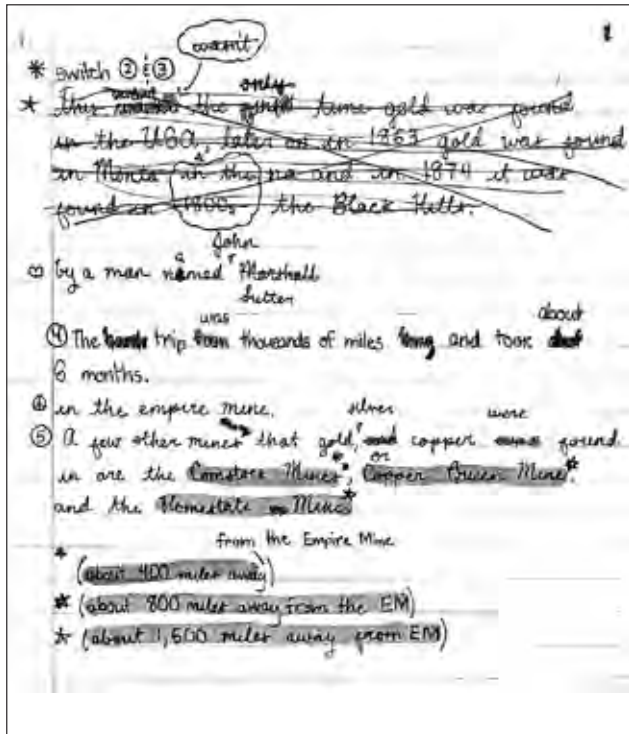 wasn't
* switch ② & ③
only
* This the time gold was found
in the USA, later on in 1863 gold was found
in Monta in the na and in 1874 it was
found in 1800s the Black Hills.
John
by a man named Marshall
Sutter
was about
④ The trip thousands of miles long and took
6 months.
in the empire mine.
silver were
⑤ A few other mines that gold, copper found
or
in are the Comstock Mines*, Copper Queen Mine*,
and the Homestake Mine*
from the Empire Mine
*
(about 400 miles away)
* (about 800 miles away from the EM)
* (about 1,500 miles away from EM)